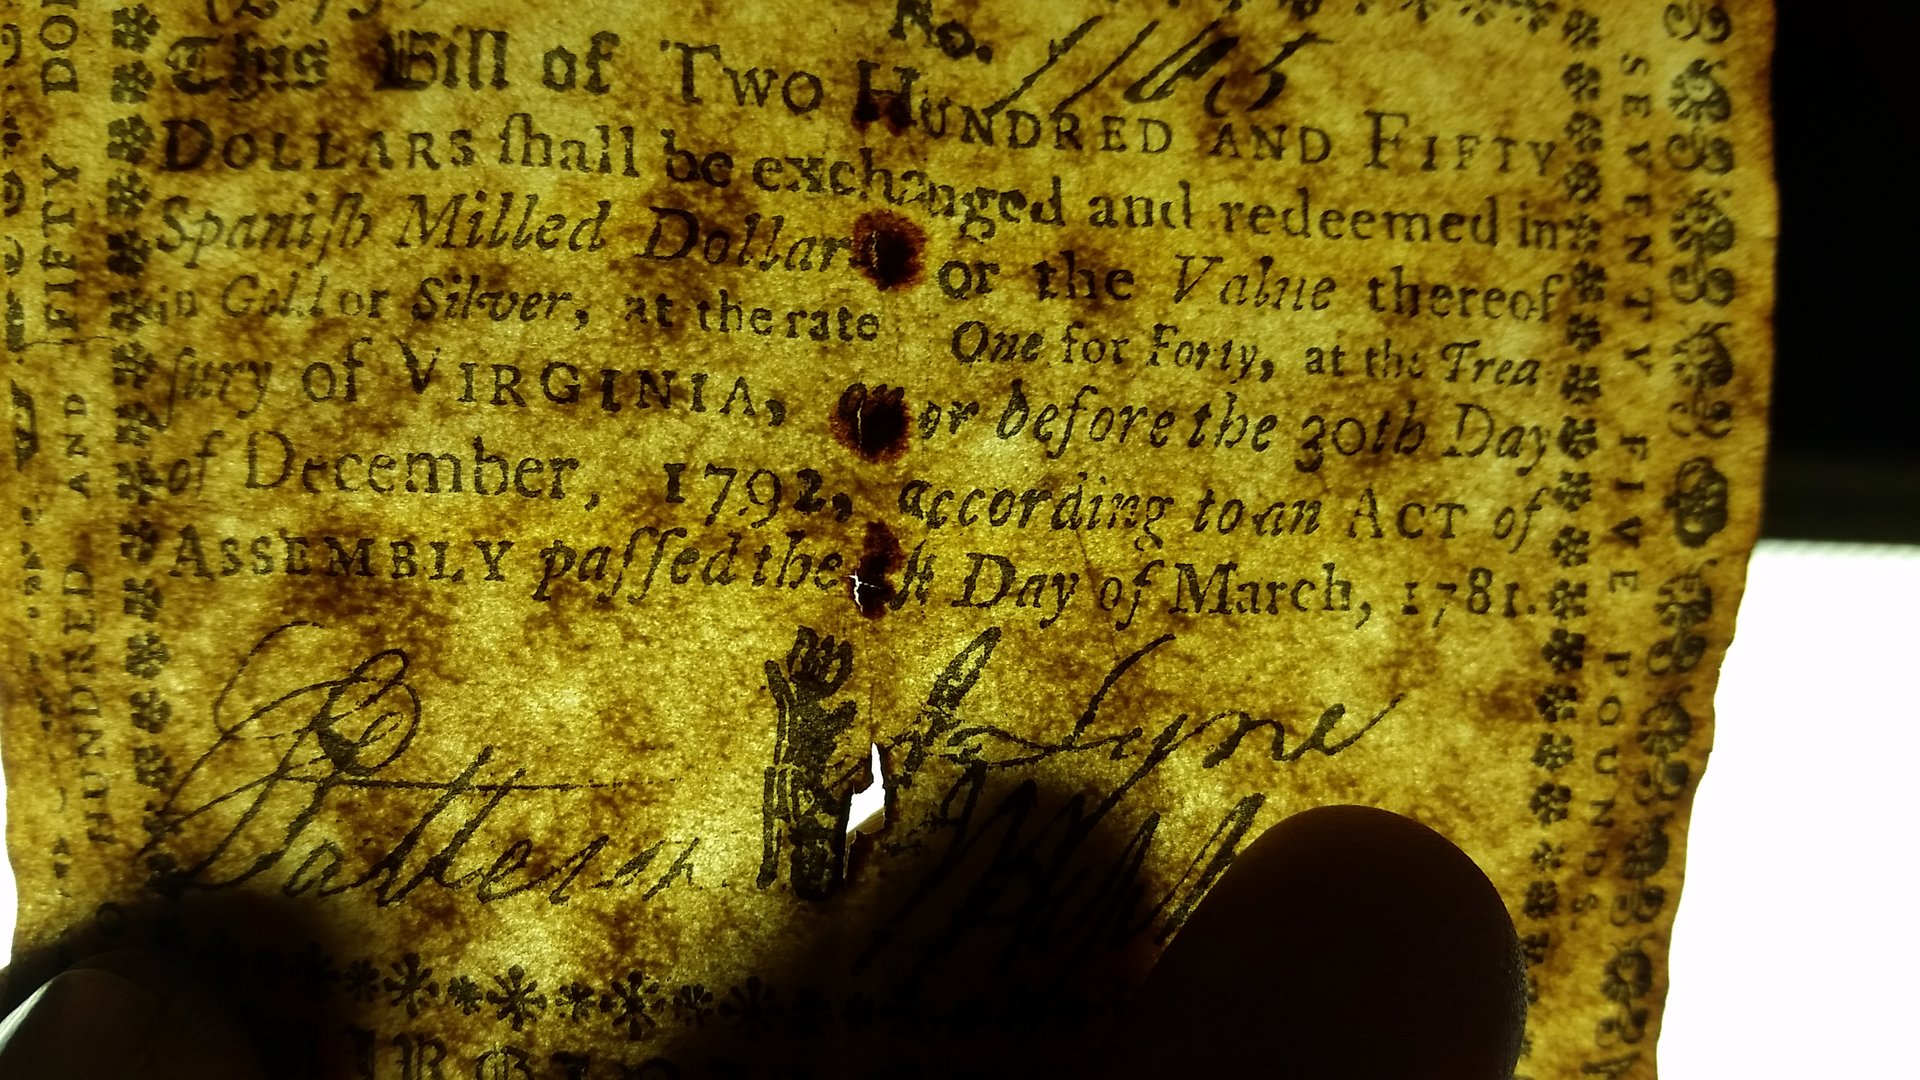 No. 1165
This Bill of TWO HUNDRED AND FIFTY
DOLLARS ſhall be exchanged and redeemed in
Spaniſh Milled Dollar or the Value thereof
in Gold or Silver, at the rate One for Forty, at the Trea
ſury of VIRGINIA, on or before the 30th Day
of December, 1792, according to an ACT of
ASSEMBLY paſſed the ſt Day of March, 1781.
Lyne
HUNDRED AND FIFTY DOL
SEVENTY FIVE POUNDS